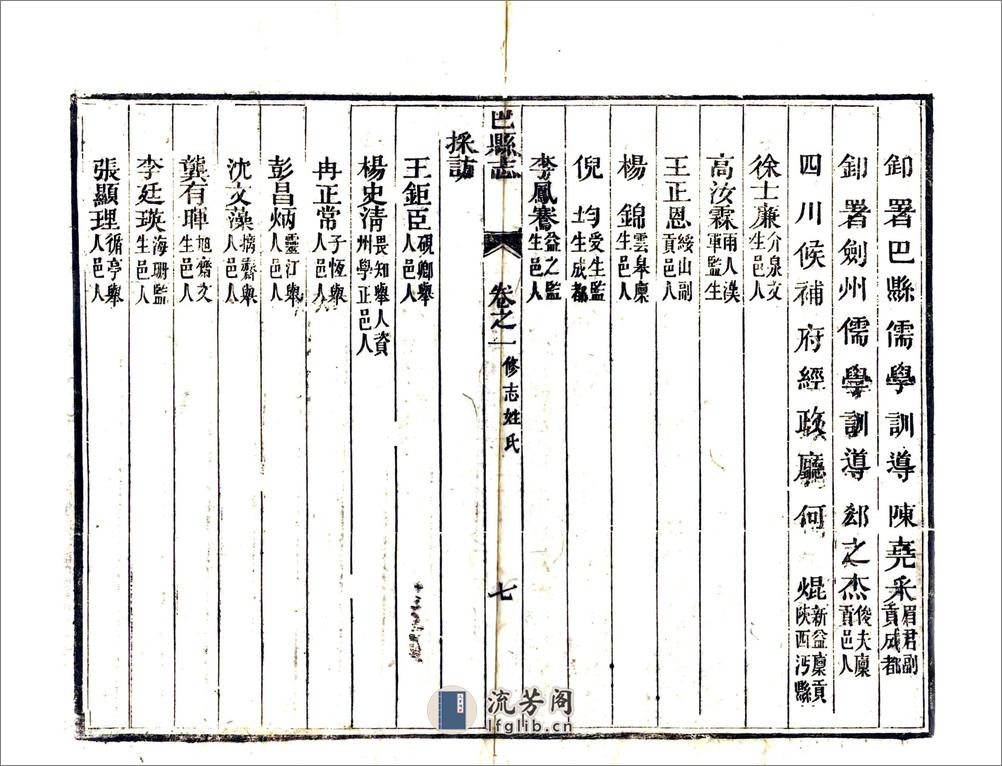 卸署巴縣儒學訓導陳堯采眉君副貢成都
卸署劍州儒學訓導鄒之杰俊夫廩貢邑人
四川候補府經政廳何焜新益廩貢陝西沔縣
徐士廉介泉文生邑人
高汝霖雨人漢軍監生
王正恩綏山副貢邑人
楊錦雲皋廩生邑人
倪均受生監生成都
李鳳騫益之監生邑人
巴縣志 卷之一 修志姓氏 七
採訪
王鉅臣硯卿舉人邑人
楊史清畏知舉人資州學正邑人
冉正常子恆舉人邑人
彭昌炳靈汀舉人邑人
沈文藻摛齋舉人邑人
龔有暉旭齋文生邑人
李廷瑛海珊監生邑人
張顯理循亭舉人邑人
流芳阁
lfglib.cn